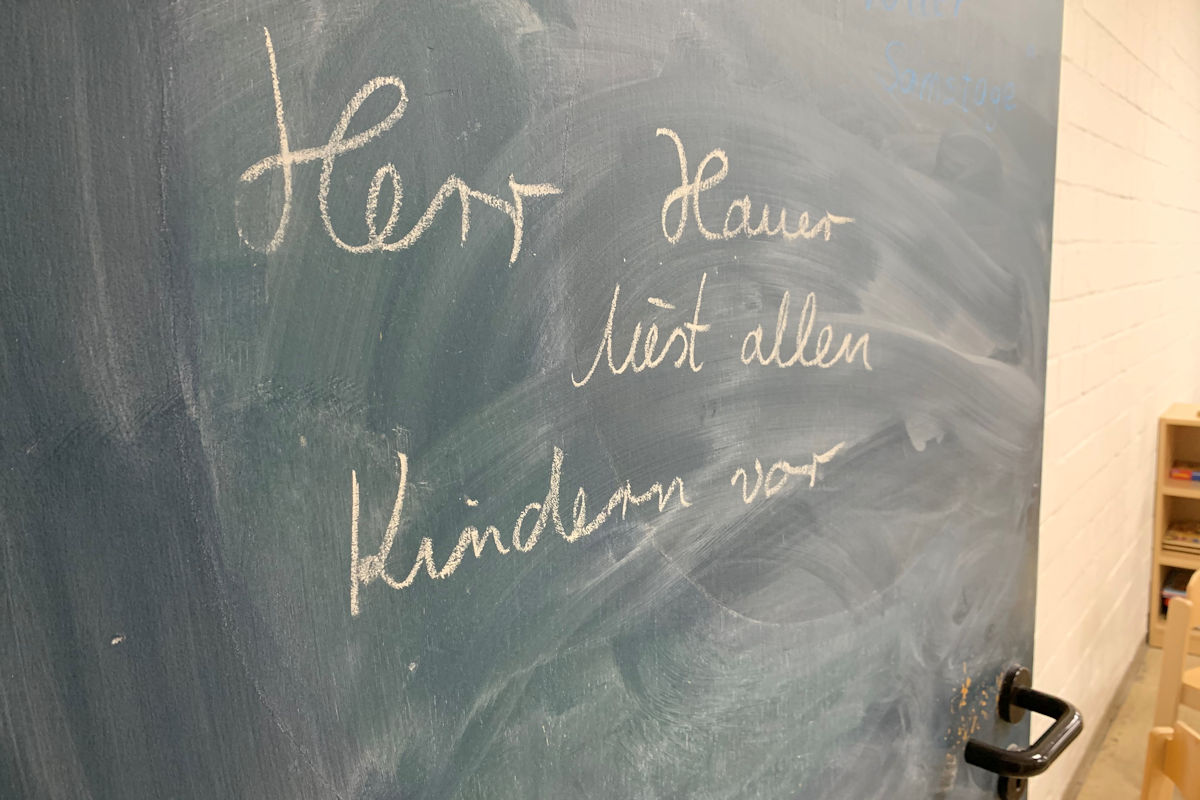 Samstage
Herr Hauer
liest allen
Kindern vor